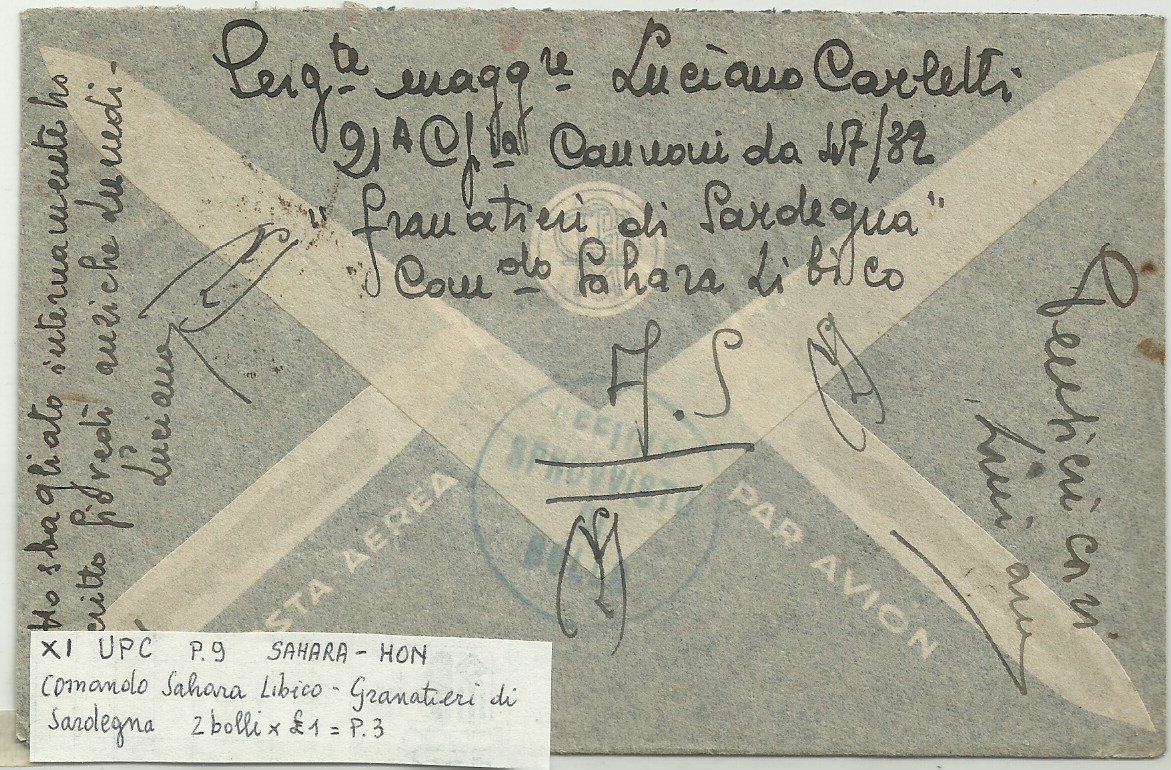 Sergte maggre Luciano Carletti
91A Cpia Cannoni da 47/32
"Granatieri di Sardegna"
Comdo Sahara Libico
Ho sbagliato internamente ho
scritto giovedì anziche lunedi -
Luciano
A.S
POSTA AEREA
PAR AVION
UFFICIO
XI UPC P.9 SAHARA - HON
Comando Sahara Libico - Granatieri di
Sardegna 2 bolli x £1 = P.3